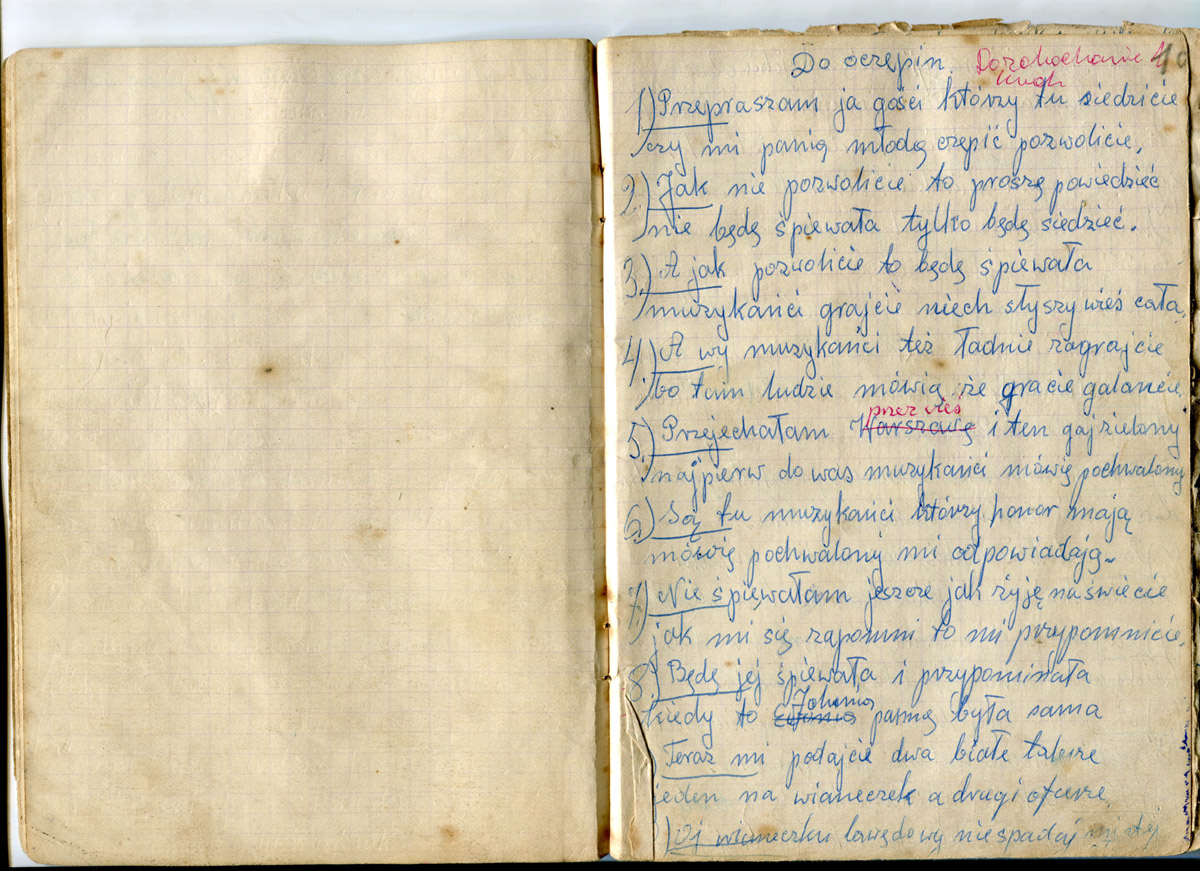 Do oczepin.
1) Przepraszam ja gości którzy tu siedzicie
czy mi panią młodą czepić pozwolicie.
2.) Jak nie pozwolicie to proszę powiedzieć
nie będę śpiewała tylko będę siedzieć.
3.) A jak pozwolicie to będę śpiewała
muzykańci grajcie niech słyszy wieś cała.
4.) A wy muzykańci też ładnie zagrajcie
bo tam ludzie mówią że gracie galancie.
przez wieś
5.) Przejechałam Warszawę i ten gaj zielony
najpierw do was muzykańci mówię pochwalony
6.) Są tu muzykańci którzy honor mają
mówię pochwalony mi odpowiadają
7.) Nie śpiewałam jeszcze jak żyję na świecie
jak mi się zapomni to mi przypomnicie.
8.) Będę jej śpiewała i przypominała
kiedy to panną była sama
Teraz mi podajcie dwa białe talerze
jeden na wianeczek a drugi
) Oj wianeczku lawędowy niespadaj